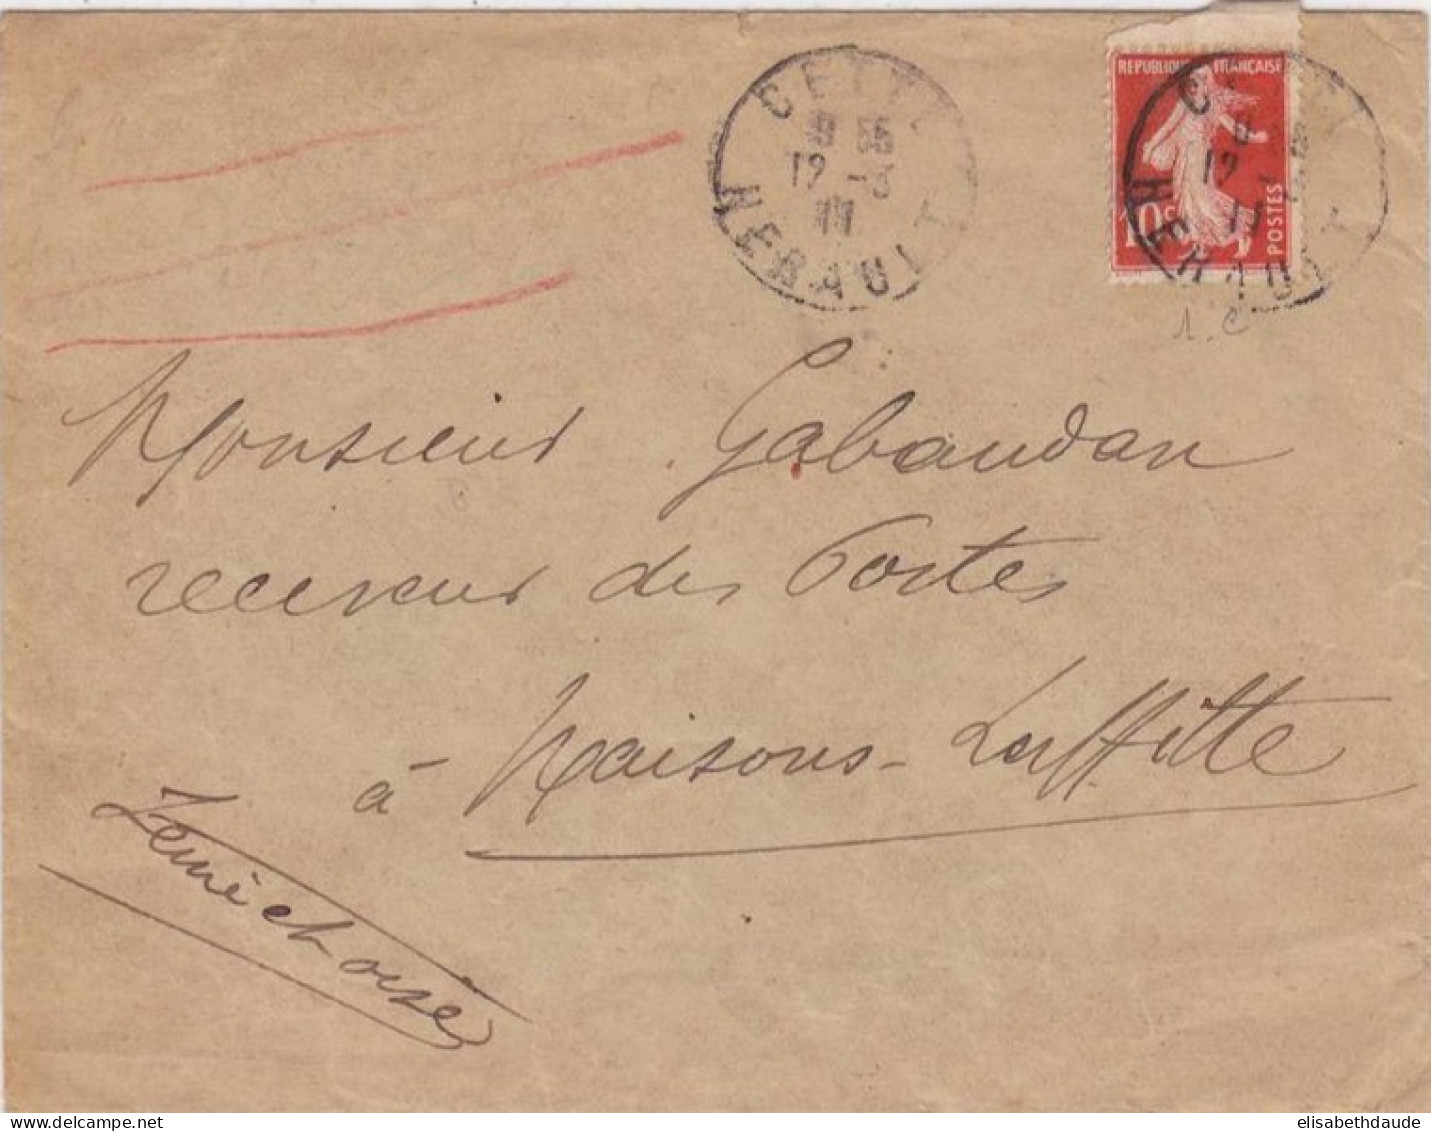 CETTE
12 -3
11
HERAULT
REPUBLIQUE FRANÇAISE
10c
POSTES
12
11
HERAULT
1.c
Monsieur Gabaudan
receveur des Postes
à Maisons-Laffitte
Seine et Oise
elisabethdaude